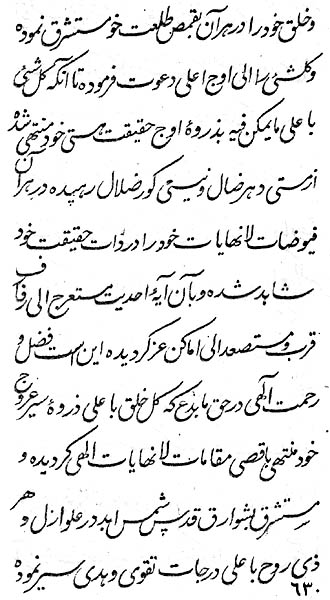 و خلق خود را در هر آن بقمص طلعت خود مستشرق نموده
و کلشیٔ را الی اوج اعلی دعوت فرموده تا آنکه کل شیٔ
با علی ما یمکن فیه بذروهٔ اوج حقیقت هستی خود منتهی شده
از رستی دهر ضال و نیستی کور ضلال رهیده در هر آن
فیوضات لانهایات خود را در ذات حقیقت خود
شاهد شده و بآن آیهٔ احدیت مستعرج الی رفاف
قرب و مستصعد الی اماکن عز کردیده این است فضل و
رحمت آلهی در حق ما بدع که کل خلق با علی ذروهٔ سیر عروج
خود منتهی باقصی مقامات لانهایات الهی کردیده و
مستشرق بشوارق قدس شمس ابد در علو ازل و هر
ذی روح با علی درجات تقوی و هدی سیر نموده
۶۳۰